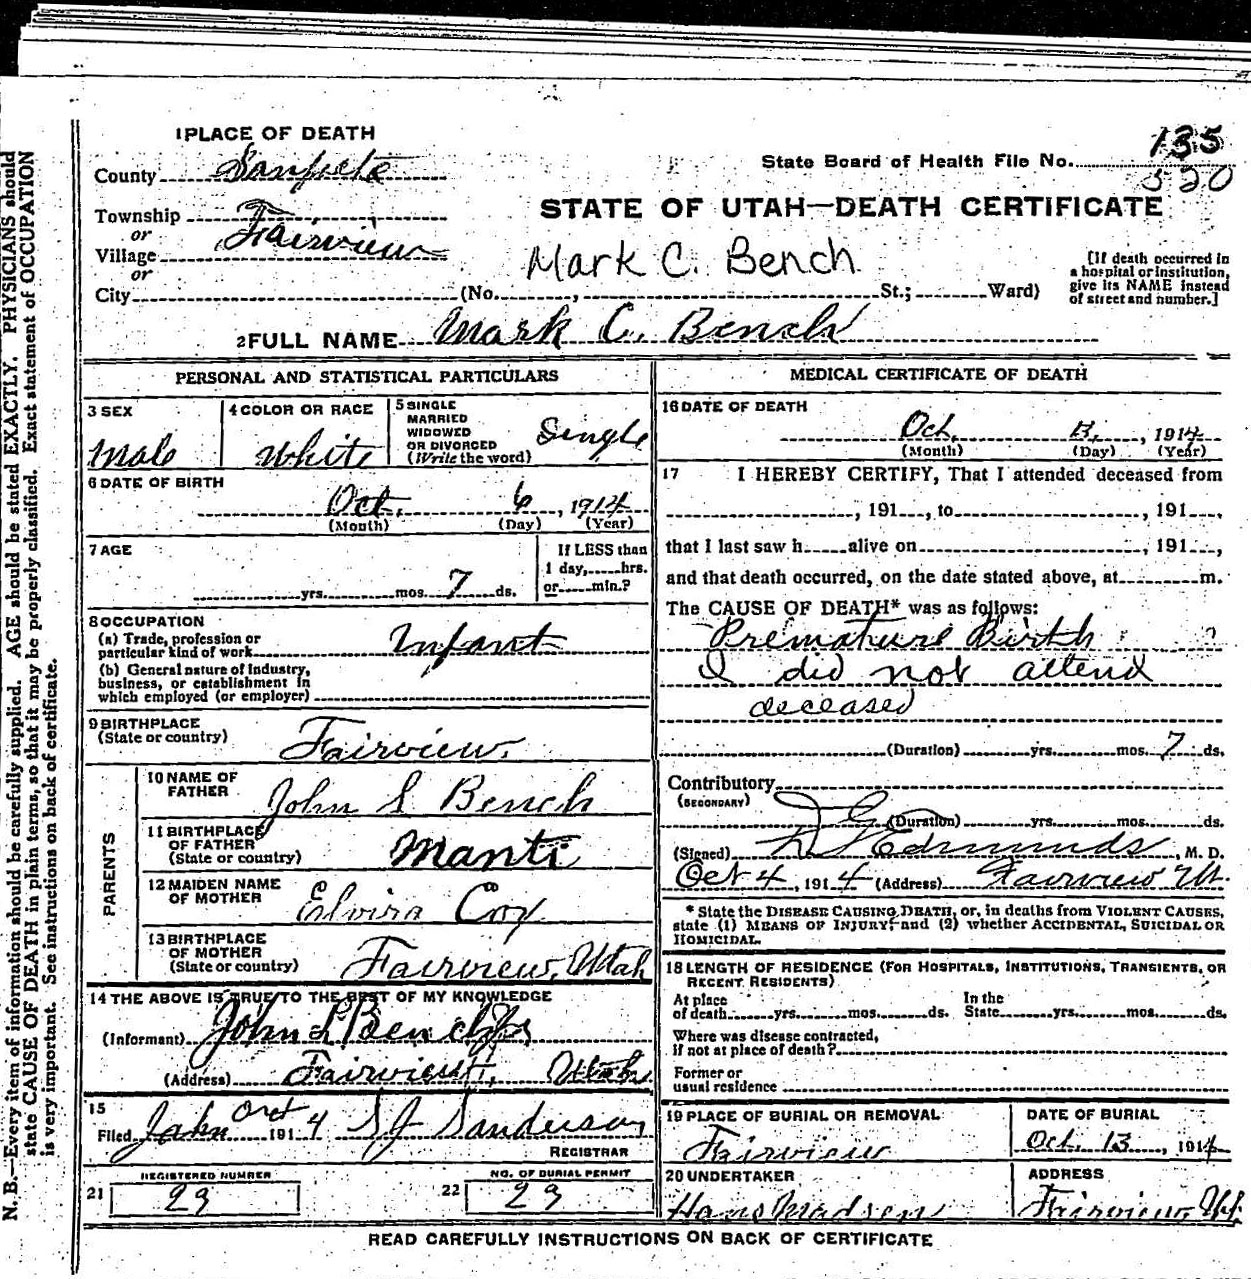 1 PLACE OF DEATH
County Sanpete
State Board of Health File No. 135
520
Township Fairview
or
Village
or
STATE OF UTAH—DEATH CERTIFICATE
Mark C. Bench
City (No. , St.; Ward)
[If death occurred in
a hospital or institution,
give its NAME instead
of street and number.]
2 FULL NAME Mark C. Bench
PERSONAL AND STATISTICAL PARTICULARS
3 SEX
Male
4 COLOR OR RACE
White
5 SINGLE
MARRIED
WIDOWED
OR DIVORCED
(Write the word)
Single
6 DATE OF BIRTH
Oct. 6, 1914
(Month) (Day) (Year)
7 AGE
yrs. mos. 7 ds.
If LESS than
1 day, hrs.
or min.?
8 OCCUPATION
(a) Trade, profession or
particular kind of work Infant
(b) General nature of industry,
business, or establishment in
which employed (or employer)
9 BIRTHPLACE
(State or country) Fairview.
PARENTS
10 NAME OF
FATHER John S Bench
11 BIRTHPLACE
OF FATHER
(State or country) Manti
12 MAIDEN NAME
OF MOTHER Elvira Cox
13 BIRTHPLACE
OF MOTHER
(State or country) Fairview, Utah
14 THE ABOVE IS TRUE TO THE BEST OF MY KNOWLEDGE
(Informant) John L Bench Jr
(Address) Fairview, Utah
15
Filed Oct 1914
REGISTRAR
REGISTERED NUMBER
21 29
NO. OF BURIAL PERMIT
22 29
MEDICAL CERTIFICATE OF DEATH
16 DATE OF DEATH
Oct. 13, 1914
(Month) (Day) (Year)
17 I HEREBY CERTIFY, That I attended deceased from
, 191 , to , 191 ,
that I last saw h alive on , 191 ,
and that death occurred, on the date stated above, at m.
The CAUSE OF DEATH* was as follows:
Premature Birth ?
I did not attend
deceased
(Duration) yrs. mos. 7 ds.
Contributory
(SECONDARY)
(Duration) yrs. mos. ds.
(Signed) Edmunds, M. D.
Oct 4, 1914 (Address) Fairview Ut.
* State the DISEASE CAUSING DEATH, or, in deaths from VIOLENT CAUSES,
state (1) MEANS OF INJURY; and (2) whether ACCIDENTAL, SUICIDAL OR
HOMICIDAL.
18 LENGTH OF RESIDENCE (FOR HOSPITALS, INSTITUTIONS, TRANSIENTS, OR
RECENT RESIDENTS)
At place
of death yrs. mos. ds.
In the
State yrs. mos. ds.
Where was disease contracted,
if not at place of death?
Former or
usual residence
19 PLACE OF BURIAL OR REMOVAL
Fairview
DATE OF BURIAL
Oct. 13, 1914
20 UNDERTAKER
Hans Madsen
ADDRESS
Fairview Ut.
READ CAREFULLY INSTRUCTIONS ON BACK OF CERTIFICATE
N. B.—Every item of information should be carefully supplied. AGE should be stated EXACTLY. PHYSICIANS should
state CAUSE OF DEATH in plain terms, so that it may be properly classified. Exact statement of OCCUPATION
is very important. See instructions on back of certificate.